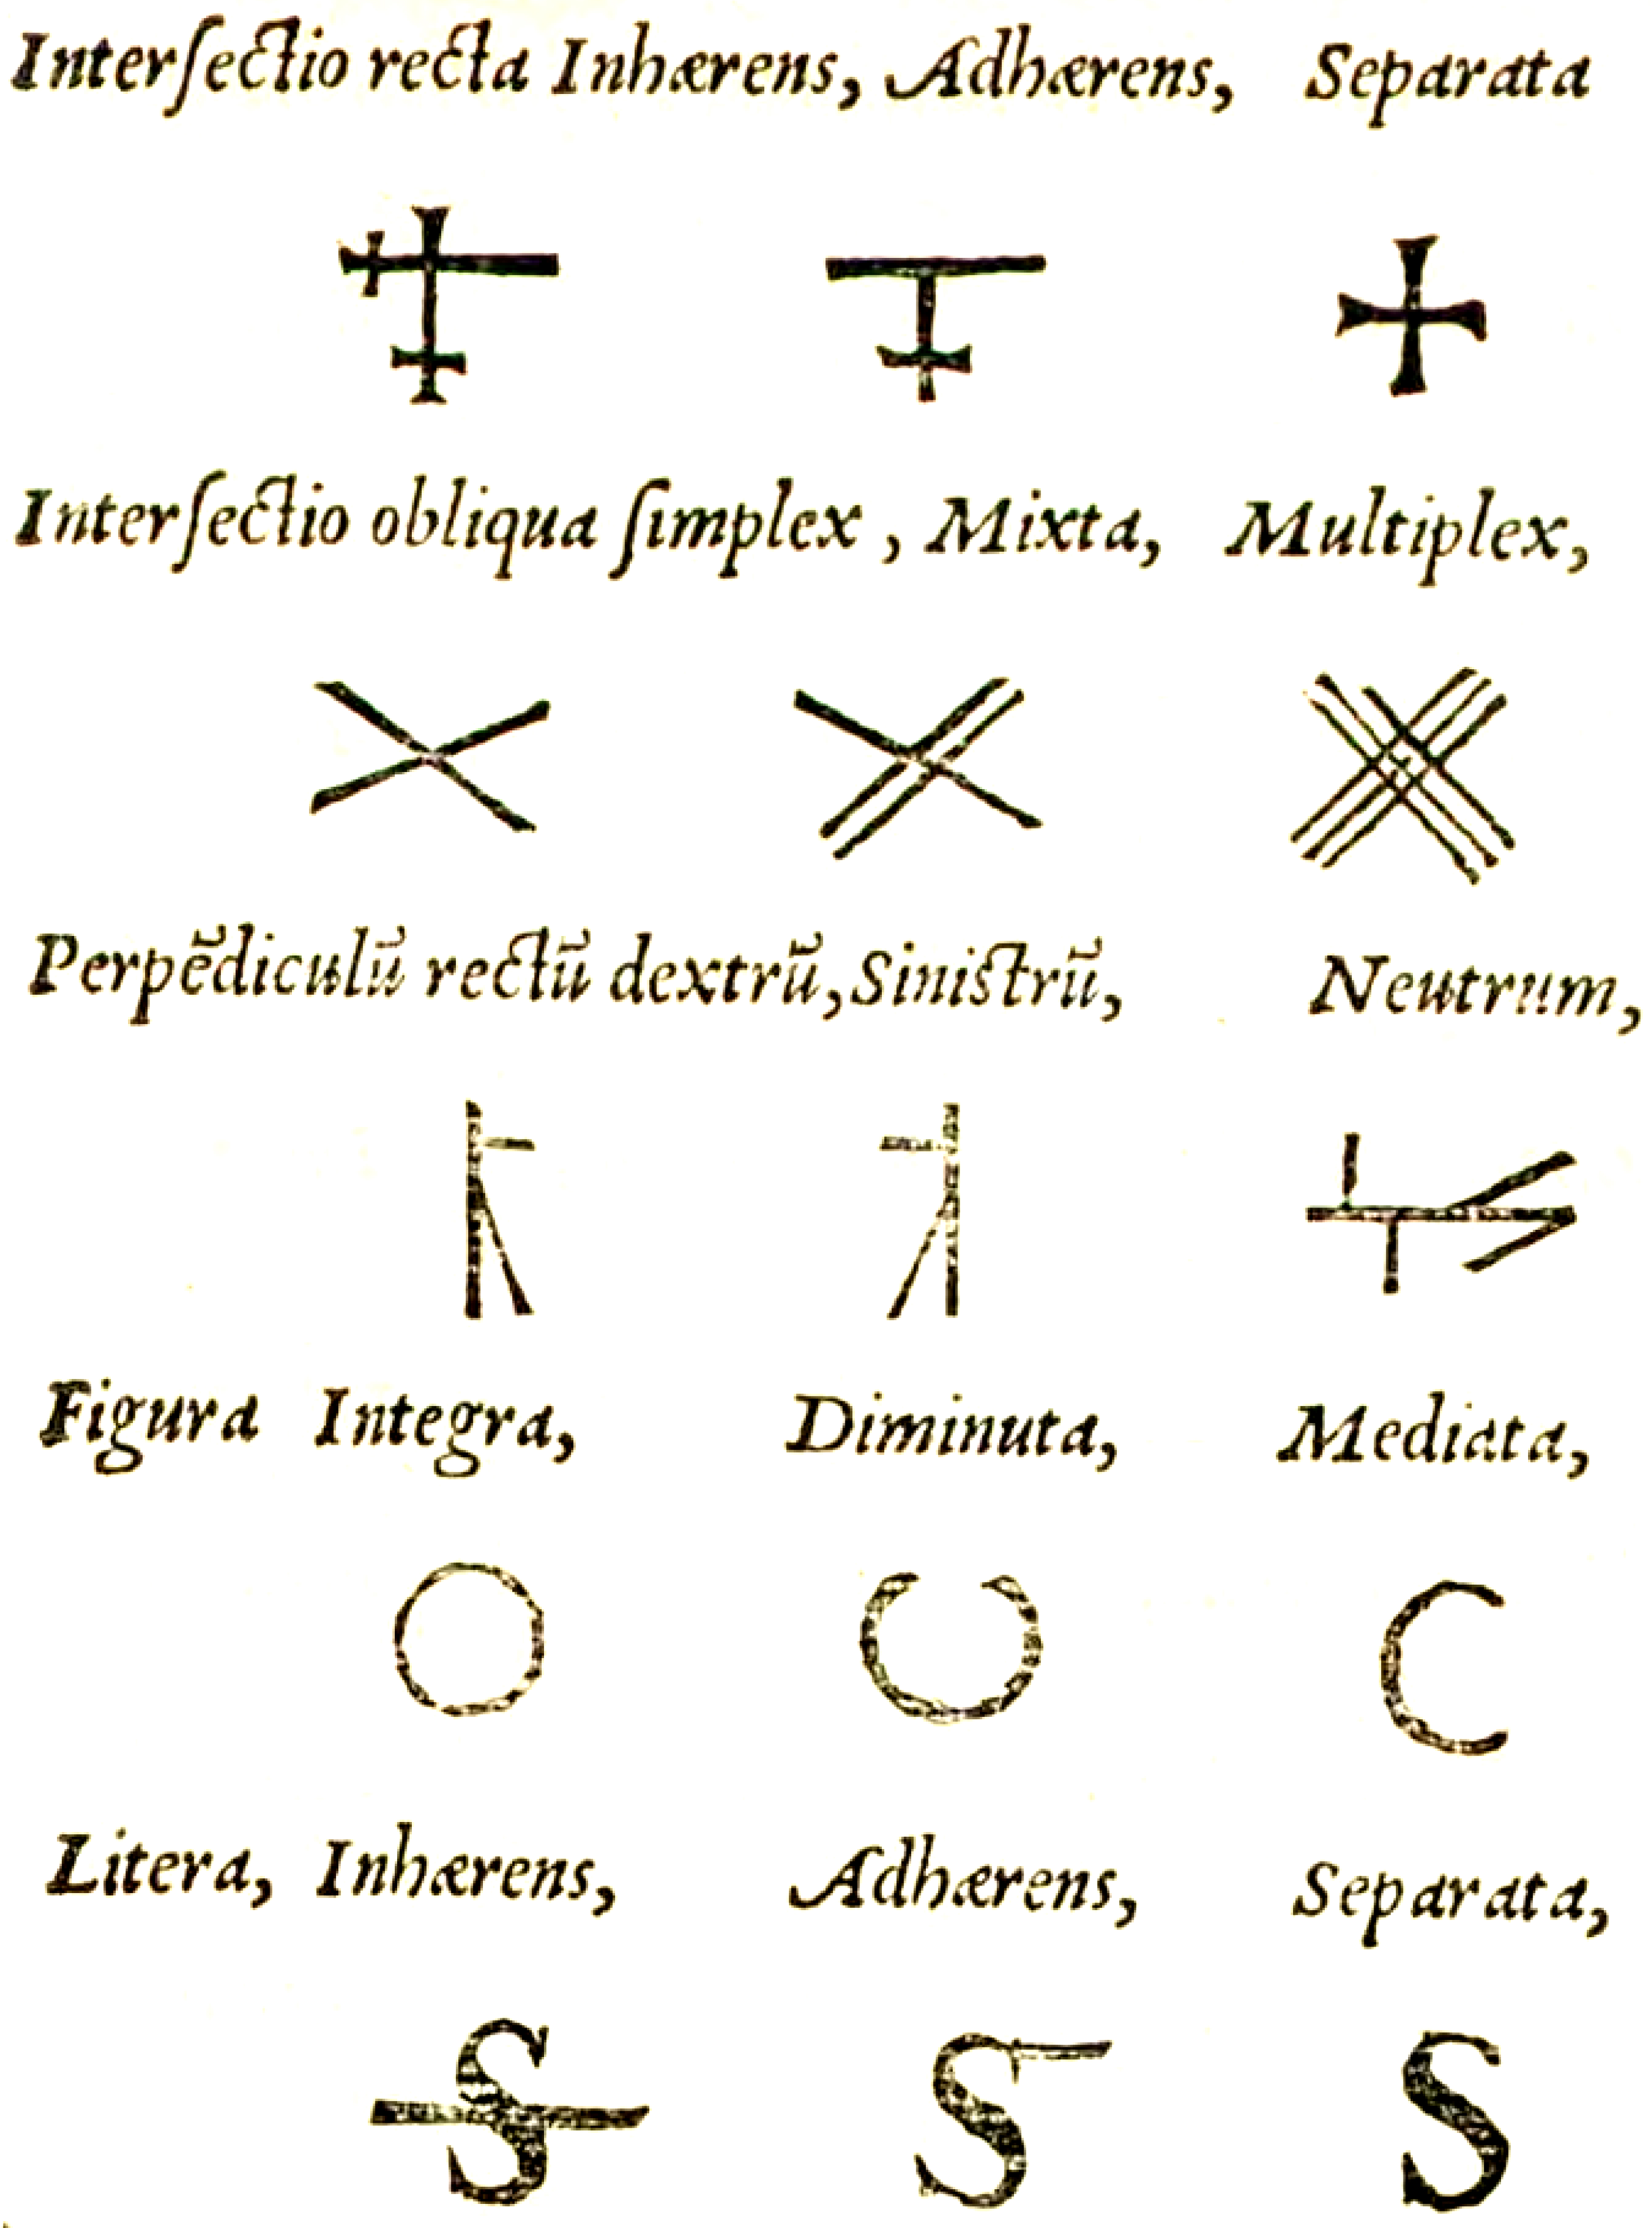 Interſectio recta Inhærens, Adhærens, Separata
Interſectio obliqua ſimplex, Mixta, Multiplex,
Perpēdiculū rectū dextrū, Siniſtrū, Neutrum,
Figura Integra, Diminuta, Mediata,
Litera, Inhærens, Adhærens, Separata,
S S S